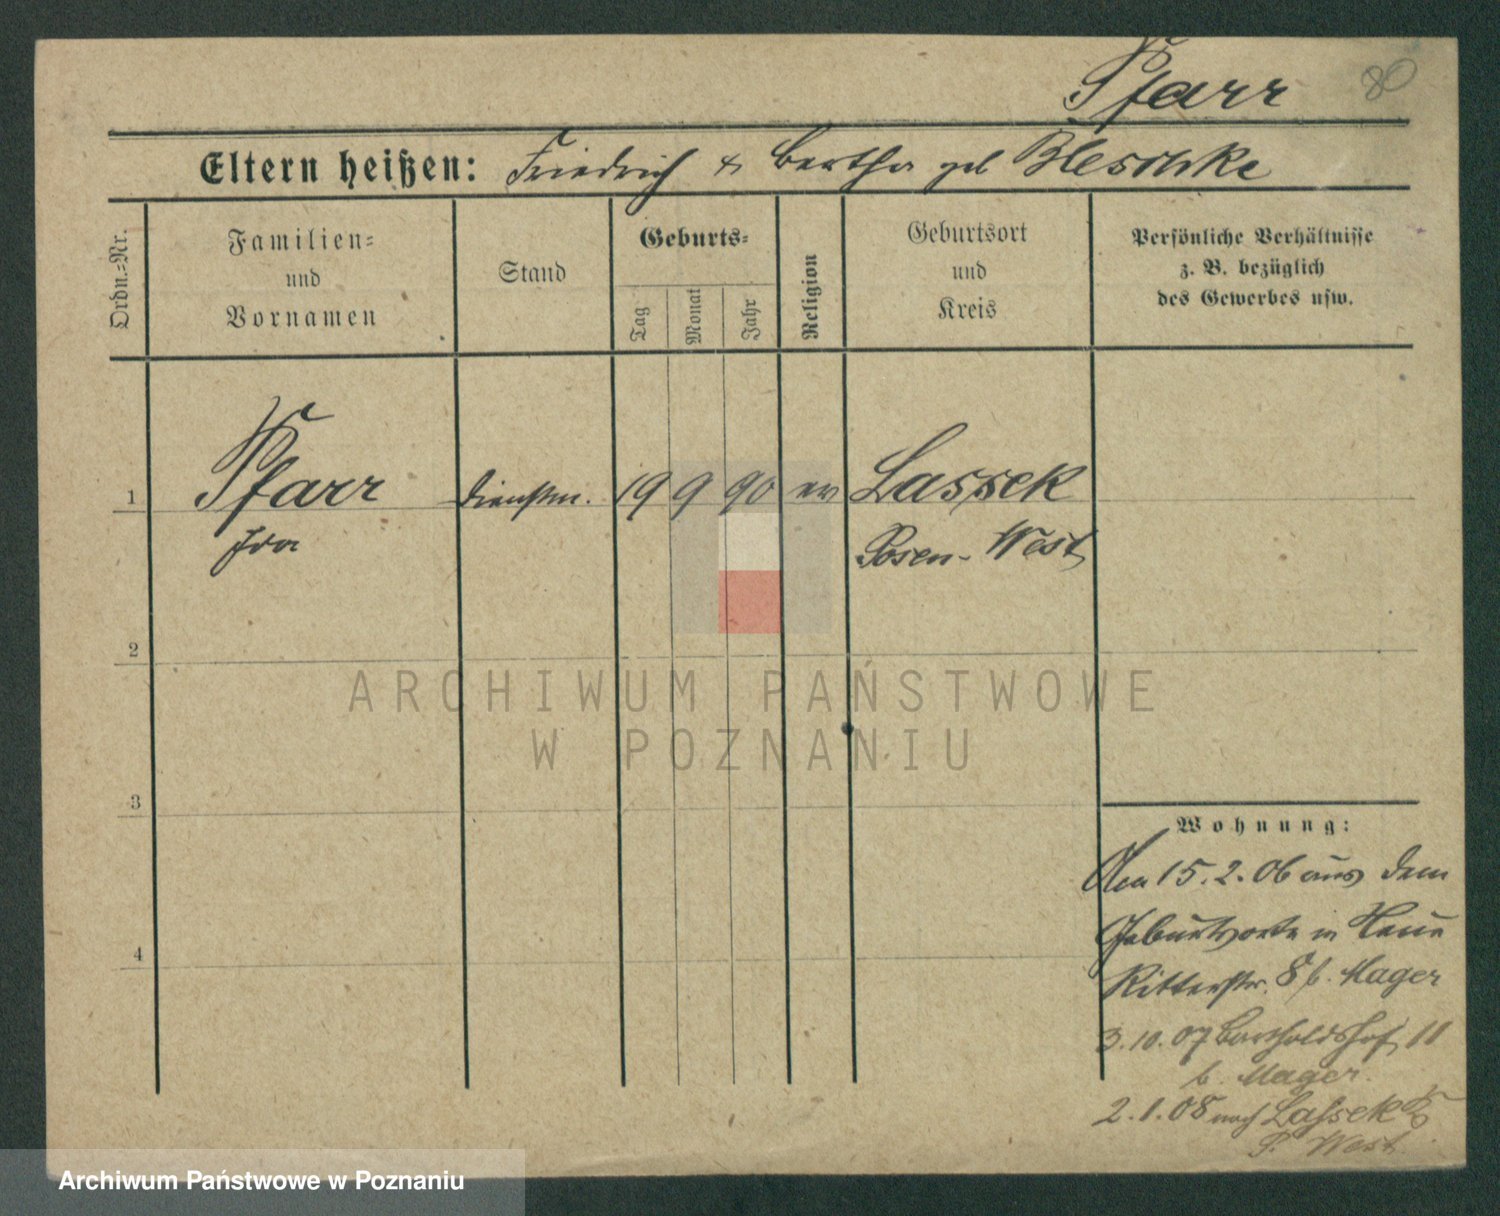 Pfarr 80
Eltern heißen: Friedrich & Bertha geb Bleschke
Ordn.=Nr.
Familien=
und
Vornamen
Stand
Geburts=
Tag
Monat
Jahr
Religion
Geburtsort
und
Kreis
Persönliche Verhältnisse
z. B. bezüglich
des Gewerbes usw.
1 Pfarr Dienstm. 19 9 90 ev Lassek
Ida Posen-West
2
3
4
ARCHIWUM PAŃSTWOWE
W POZNANIU
Wohnung:
Am 15.2.06 aus dem
Geburtsorte in Neue
Ritterstr. 8 b. Mager
3.10.07 Bartholdshof 11
b. Mager.
2.1.08 nach Lassek
P. West.
Archiwum Państwowe w Poznaniu